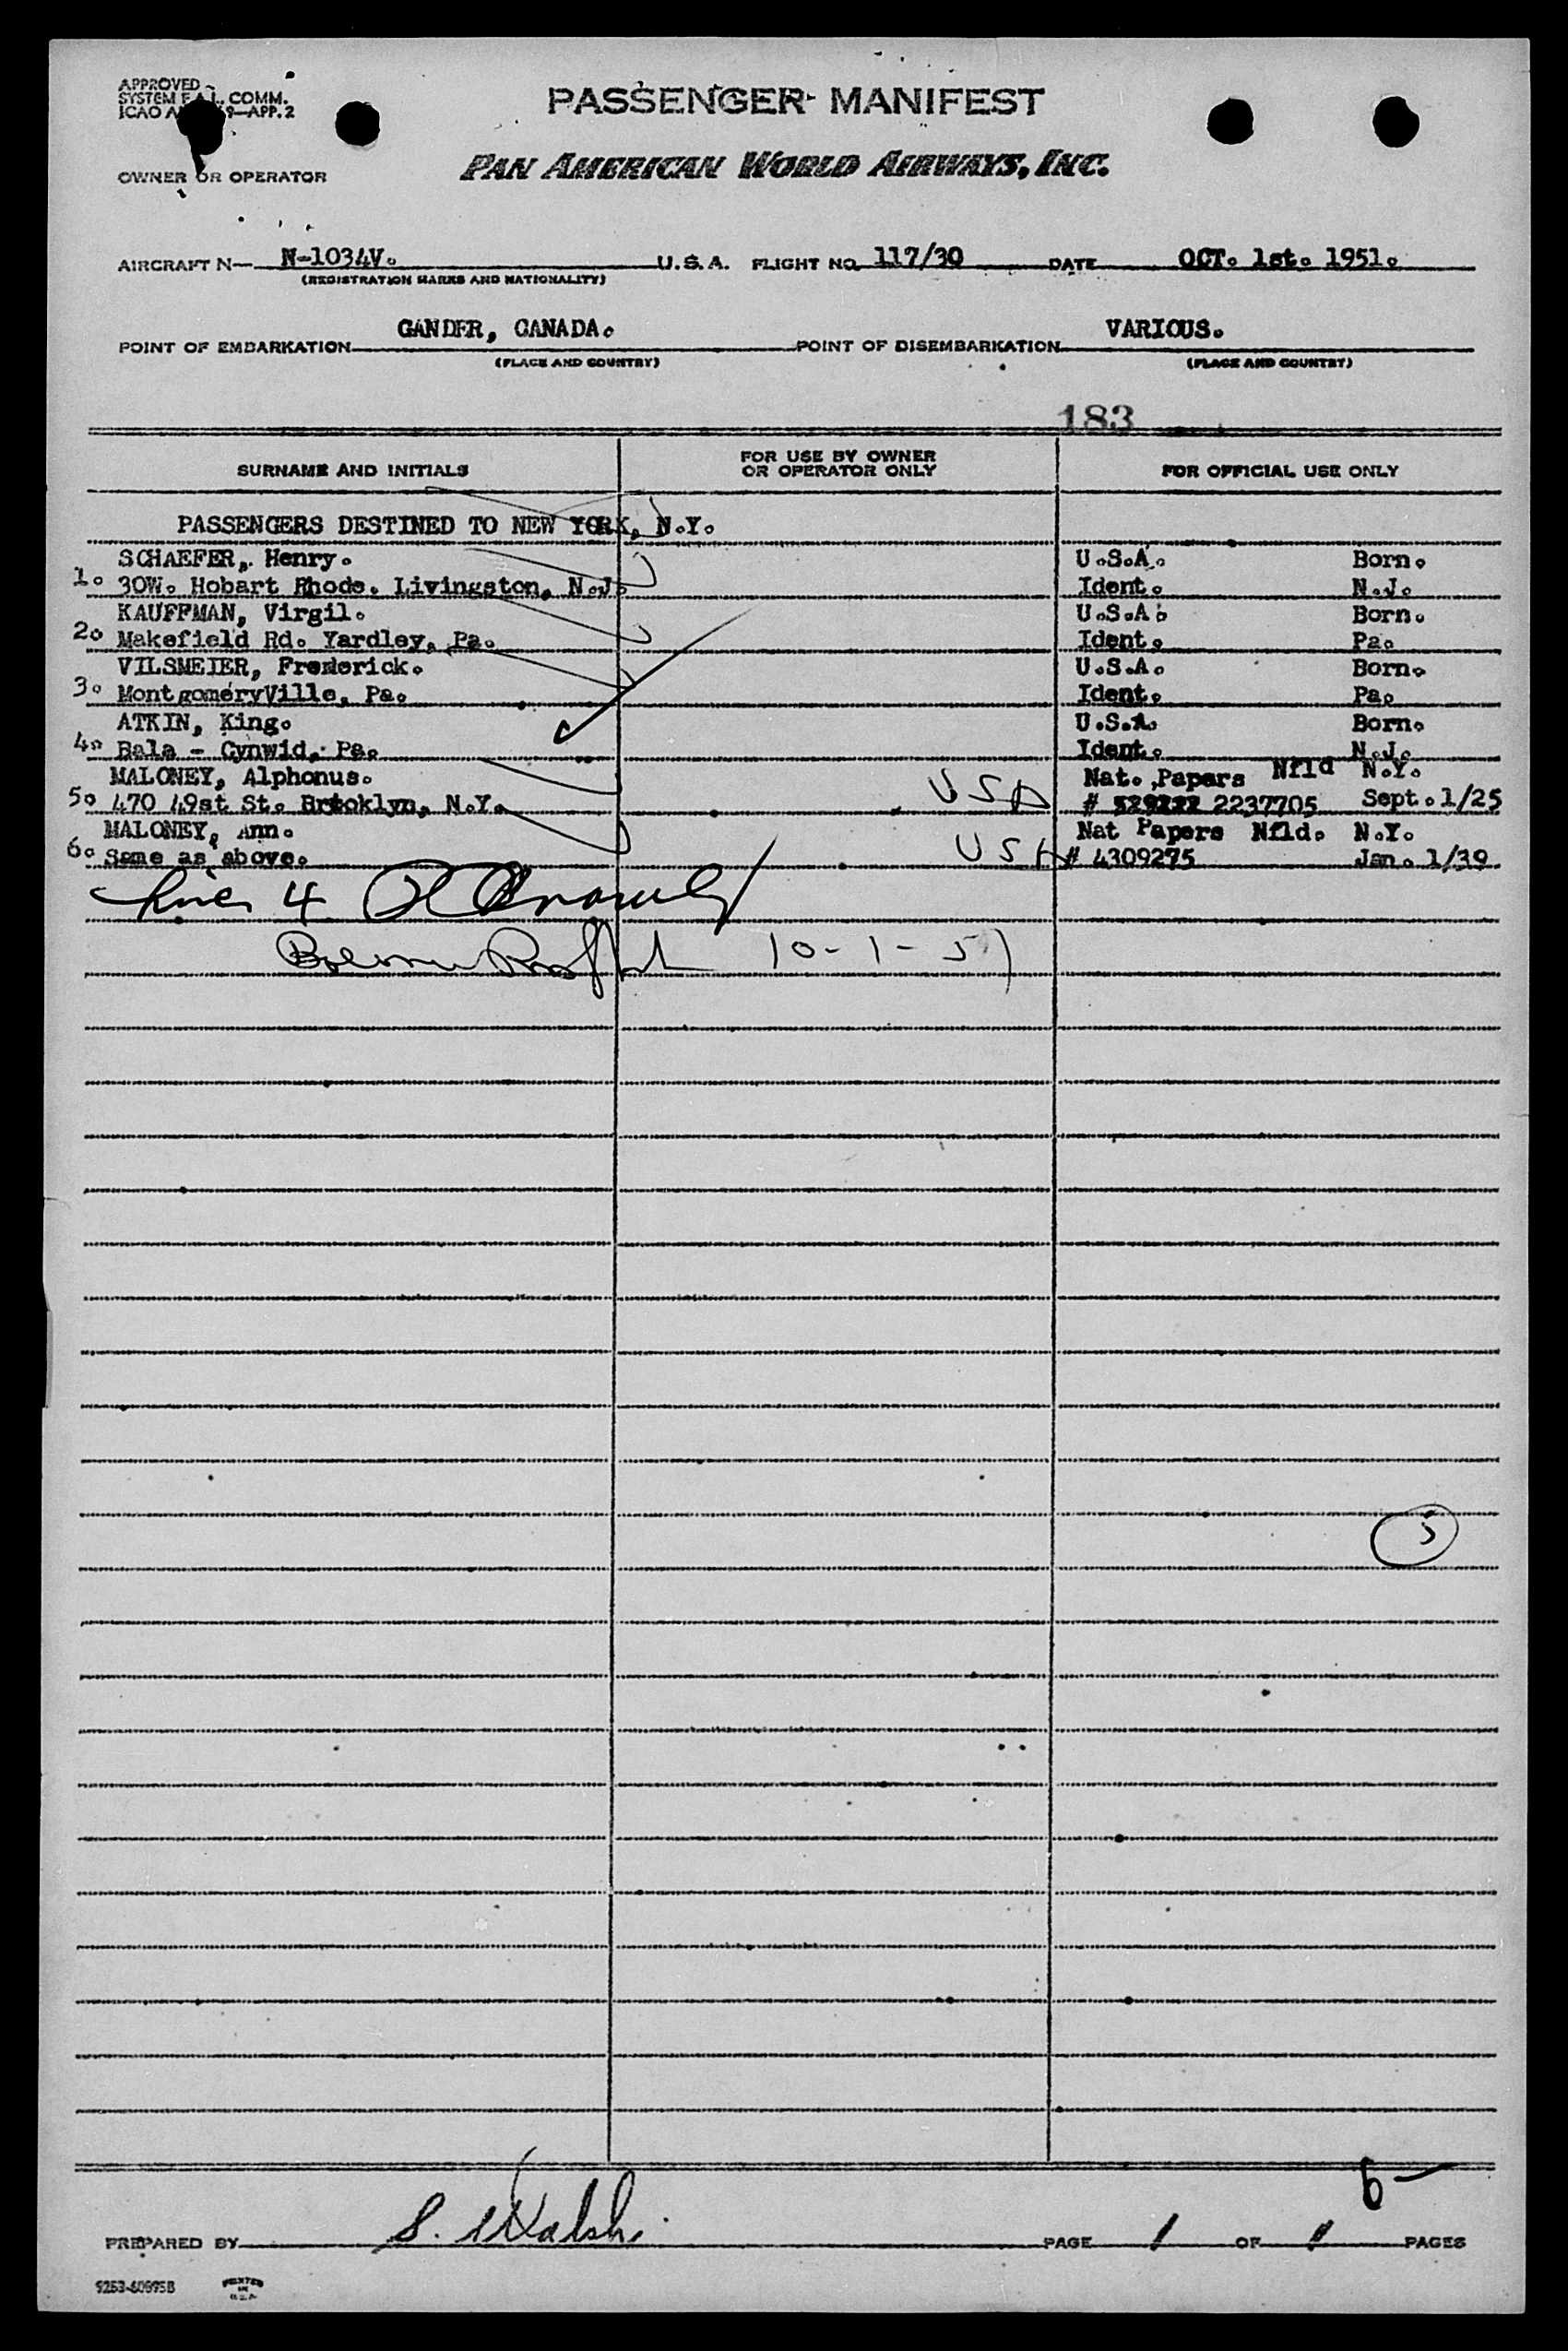 APPROVED
SYSTEM F.A.L. COMM.
ICAO 9—APP. 2
PASSENGER MANIFEST
OWNER OR OPERATOR
PAN AMERICAN WORLD AIRWAYS, INC.
AIRCRAFT N— N-1034V. U.S.A. FLIGHT NO. 117/30 DATE OCT. 1st. 1951.
(REGISTRATION MARKS AND NATIONALITY)
POINT OF EMBARKATION GANDER, CANADA. POINT OF DISEMBARKATION VARIOUS.
(PLACE AND COUNTRY) (PLACE AND COUNTRY)
183
SURNAME AND INITIALS FOR USE BY OWNER OR OPERATOR ONLY FOR OFFICIAL USE ONLY
PASSENGERS DESTINED TO NEW YORK, N.Y.
SCHAEFER, Henry. U.S.A. Born.
1. 30W. Hobart Rhode. Livingston, N.J. Ident. N.J.
KAUFFMAN, Virgil. U.S.A. Born.
2. Makefield Rd. Yardley, Pa. Ident. Pa.
VILSMEIER, Frederick. U.S.A. Born.
3. MontgomeryVille, Pa. Ident. Pa.
ATKIN, King. U.S.A. Born.
4. Bala - Cynwid, Pa. Ident. N.J.
MALONEY, Alphonus. Nat. Papers Nfld N.Y.
5. 470 49st St. Brooklyn, N.Y. USA # 2237705 Sept. 1/25
MALONEY, Ann. Nat Papers Nfld. N.Y.
6. Same as above. USA # 4309275 Jan. 1/39
Line 4
10-1-51
5
6
PREPARED BY S. Walsh. PAGE 1 OF 1 PAGES
9253-60995B PRINTED IN U.S.A.